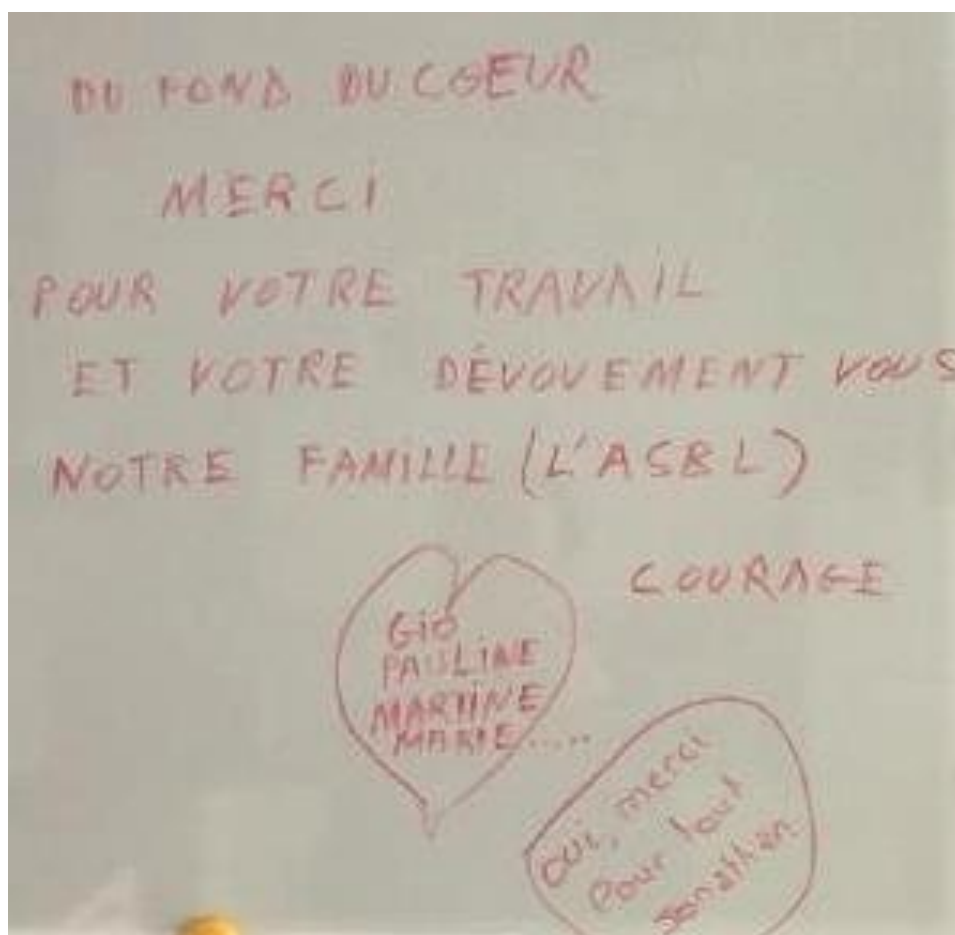 DU FOND DU COEUR
MERCI
POUR VOTRE TRAVAIL
ET VOTRE DÉVOUEMENT VOUS
NOTRE FAMILLE (L'ASBL)
COURAGE
GIO
PAULINE
MARTINE
MARIE.....
oui, merci
Pour tout
Jonathan